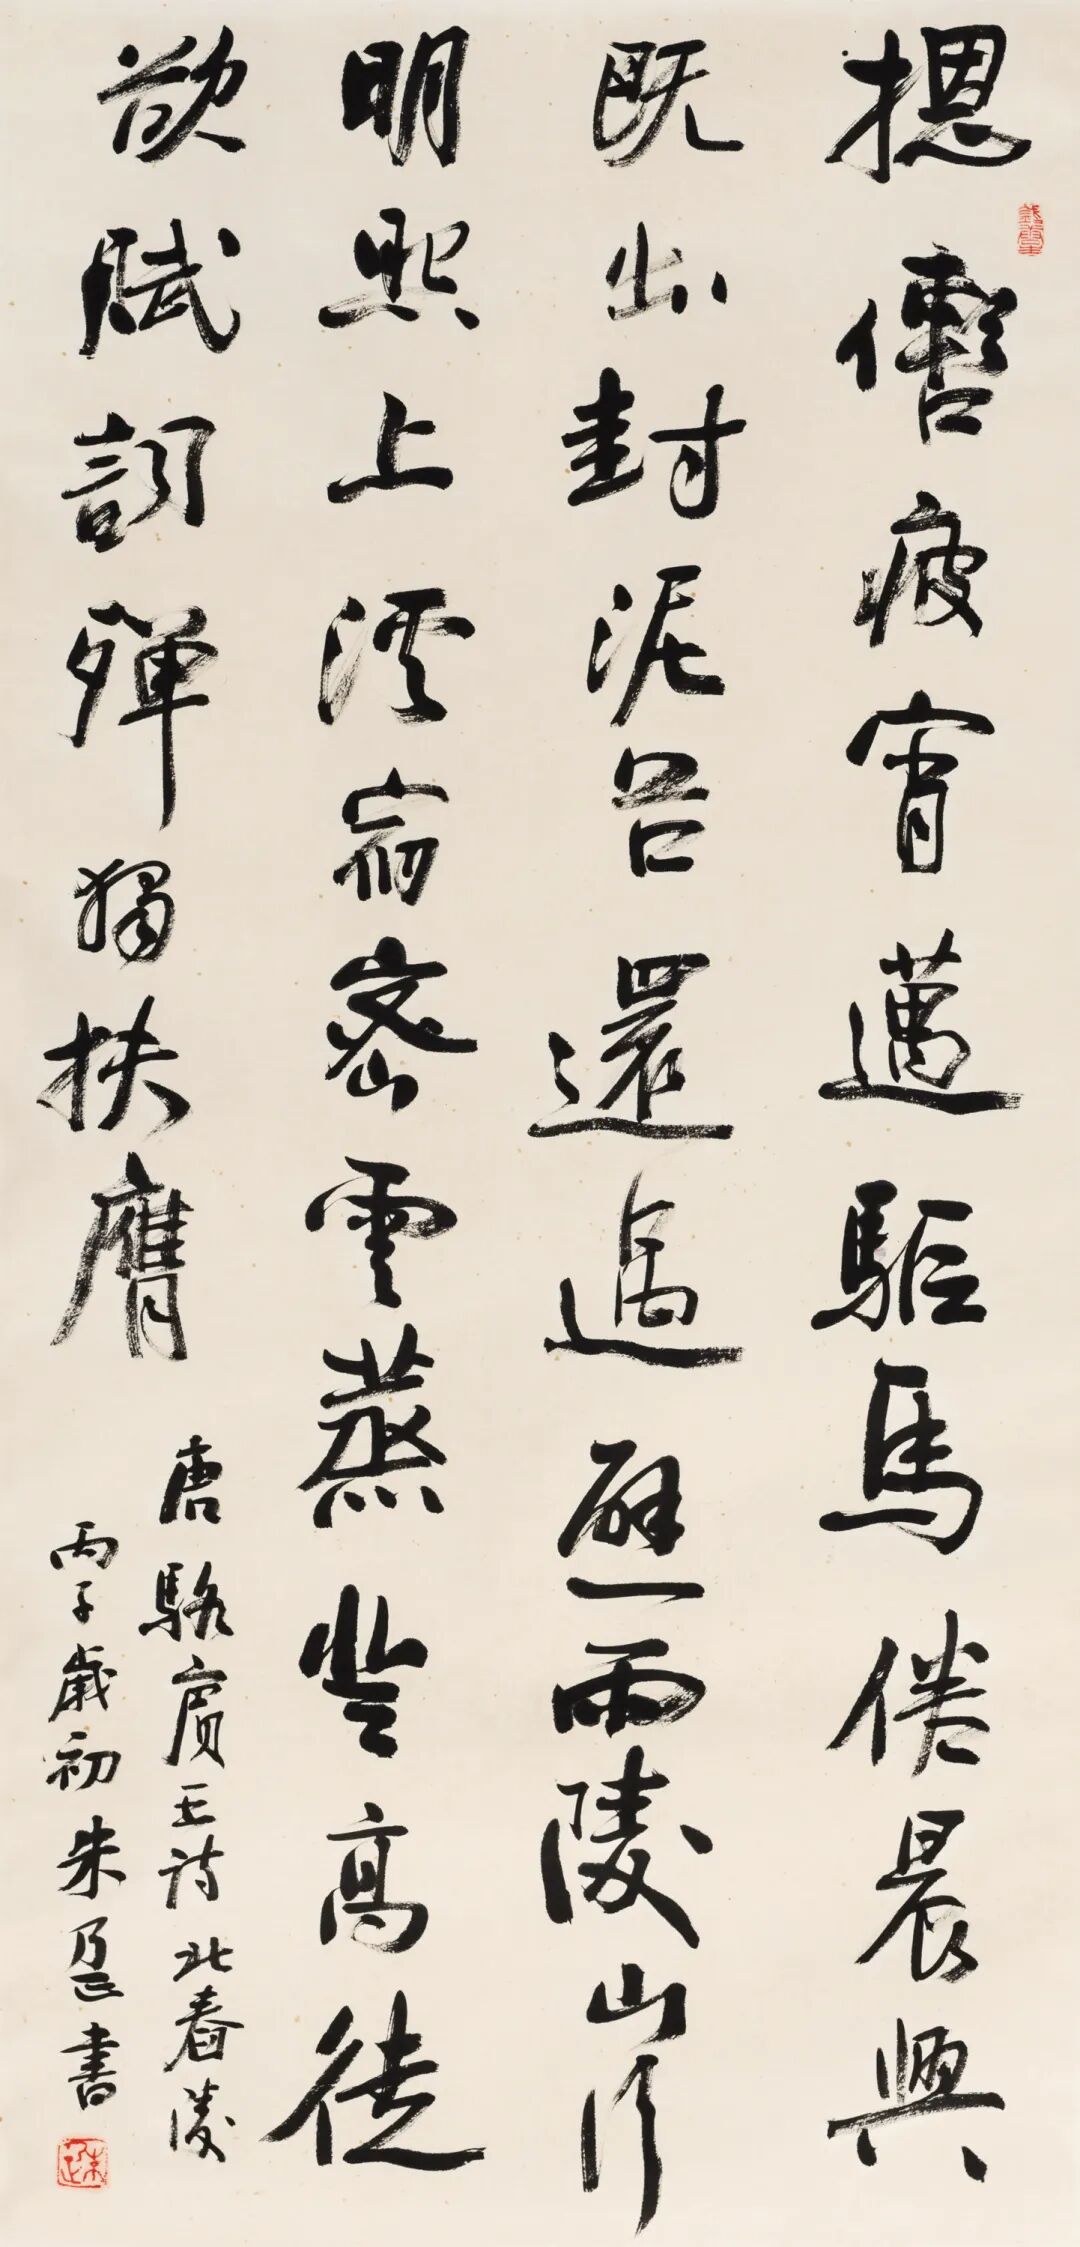 揔轡疲宵邁驅馬倦晨興
既出封泥谷還過避雨陵山行
明照上溪宿密雲蒸登高徒
欲賦詞殫獨扶膺
唐駱賓王詩北舂陵
丙子歲初朱乃正書